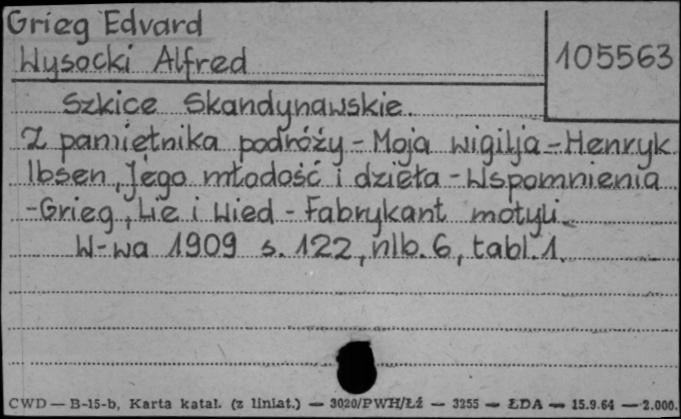 Grieg Edvard
Wysocki Alfred
105563
Szkice Skandynawskie.
Z pamiętnika podróży - Moja wigilja - Henryk
Ibsen, Jego młodość i dzieła - Wspomnienia
- Grieg, Lie i Wied - Fabrykant motyli.
W-wa 1909 s. 122, nlb. 6, tabl. 1.
CWD — B-15-b, Karta katal. (z liniat.) — 3020/PWH/Łź — 3255 — ŁDA — 15.9.64 — 2.000.